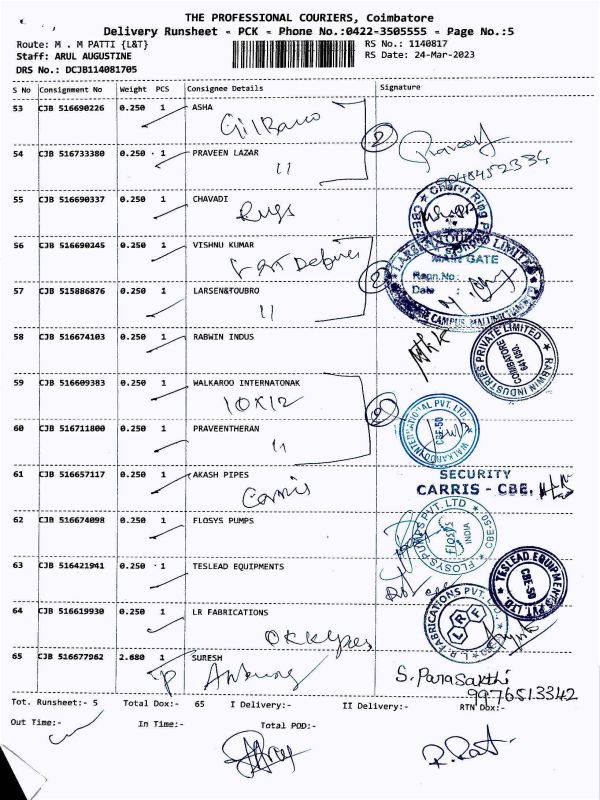 THE PROFESSIONAL COURIERS, Coimbatore
Delivery Runsheet - PCK - Phone No.:0422-3505555 - Page No.:5
Route: M . M PATTI {L&T}
RS No.: 1140817
Staff: ARUL AUGUSTINE
RS Date: 24-Mar-2023
DRS No.: DCJB114081705
S No Consignment No Weight PCS Consignee Details Signature
53 CJB 516690226 0.250 1 ASHA
54 CJB 516733380 0.250 1 PRAVEEN LAZAR
11
Praveen
9048452334
55 CJB 516690337 0.250 1 CHAVADI
Rugs
56 CJB 516690245 0.250 1 VISHNU KUMAR
MAIN GATE
Regn.No:
Date :
57 CJB 515886876 0.250 1 LARSEN&TOUBRO
11
58 CJB 516674103 0.250 1 RABWIN INDUS
RABWIN INDUSTRIES PRIVATE LIMITED
COIMBATORE
641 050.
59 CJB 516609383 0.250 1 WALKAROO INTERNATONAK
10x12
WALKAROO INTERNATIONAL PVT. LTD.
CBE-50
60 CJB 516711800 0.250 1 PRAVEENTHERAN
11
61 CJB 516657117 0.250 1 AKASH PIPES
Carris
SECURITY
CARRIS - CBE.
62 CJB 516674098 0.250 1 FLOSYS PUMPS
FLOSYS PUMPS PVT. LTD
flosys
INDIA
CBE-50
63 CJB 516421941 0.250 1 TESLEAD EQUIPMENTS
TESLEAD EQUIPMENTS PVT. LTD.
CBE-50
64 CJB 516619930 0.250 1 LR FABRICATIONS
L.R. FABRICATIONS PVT. LTD.
LRF
65 CJB 516677962 2.680 1 SURESH
S. Parasakthi
9976513342
Tot. Runsheet:- 5 Total Dox:- 65 I Delivery:- II Delivery:- RTN Dox:-
Out Time:- In Time:- Total POD:-